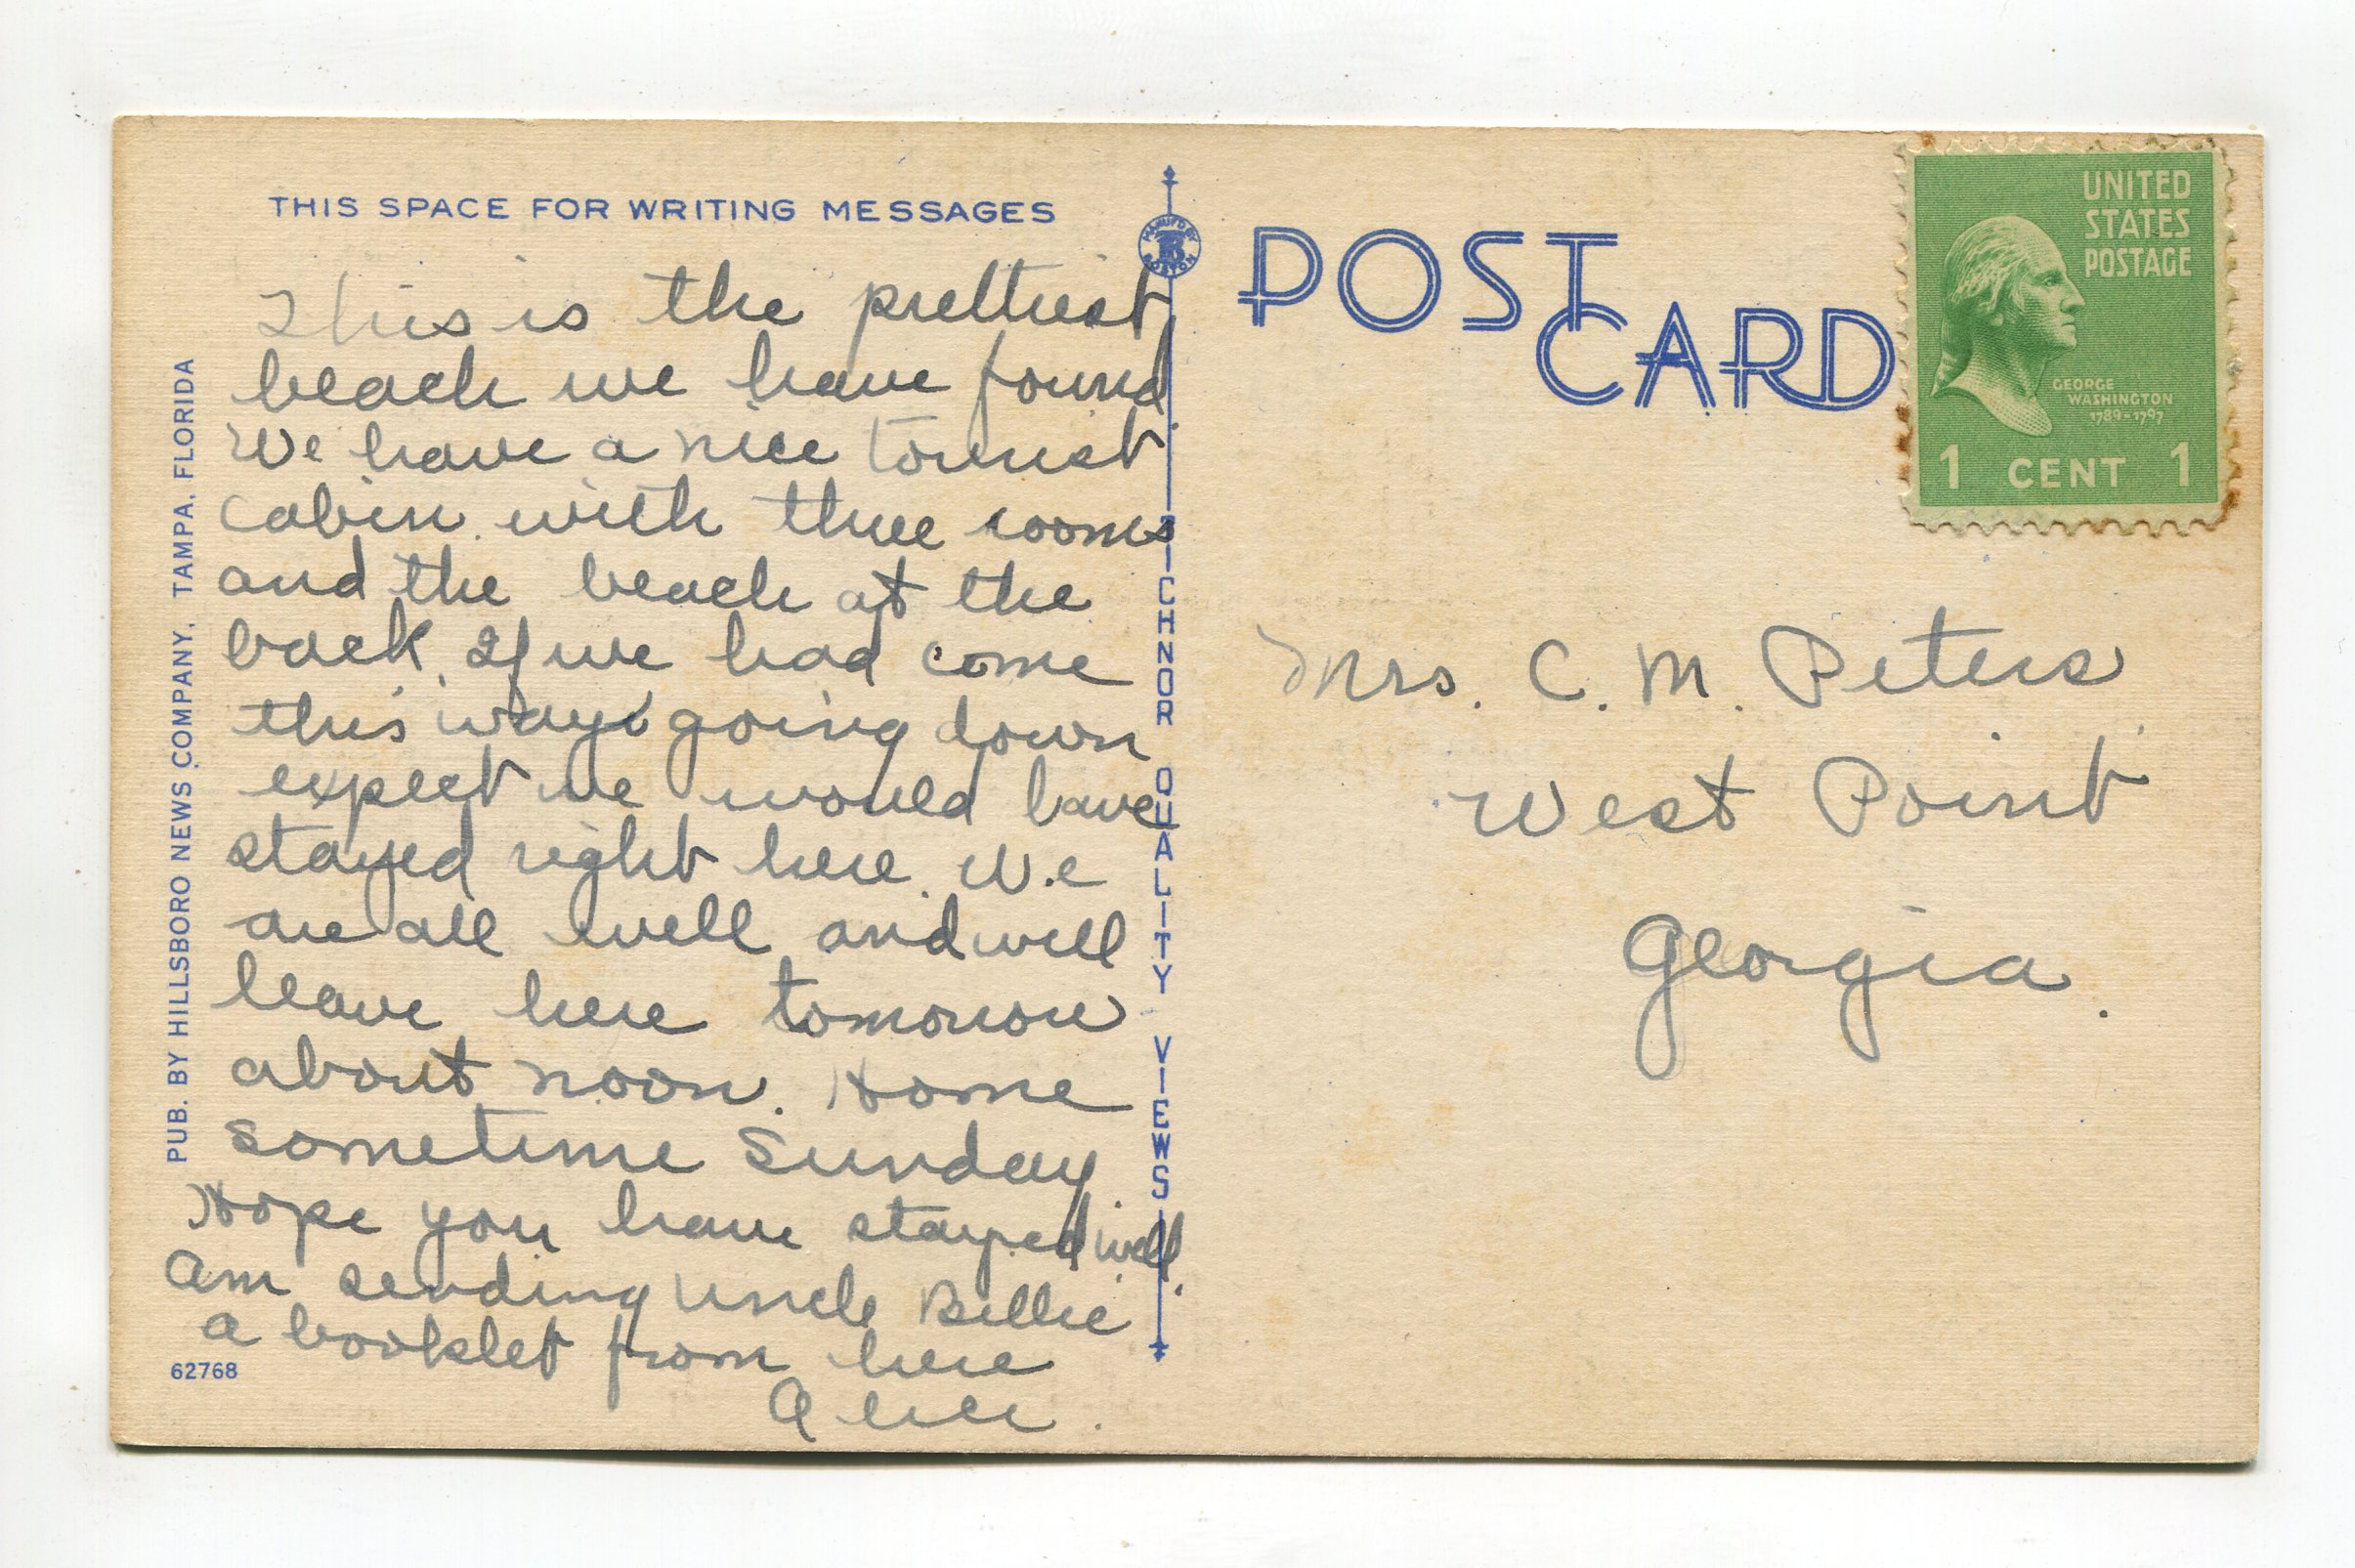 THIS SPACE FOR WRITING MESSAGES
This is the prettiest
beach we have found.
We have a nice tourist
cabin with three rooms
and the beach at the
back. If we had come
this way going down
expect we would have
stayed right here. We
are all well and will
leave here tomorrow
about noon. Home
sometime Sunday.
Hope you have stayed well.
Am sending Uncle Billie
a booklet from here
Alice.
PUB. BY HILLSBORO NEWS COMPANY, TAMPA, FLORIDA
62768
MANUF'D BY
TB
BOSTON
TICHNOR QUALITY VIEWS
POST
CARD
UNITED
STATES
POSTAGE
GEORGE
WASHINGTON
1789-1797
1 CENT 1
Mrs. C. M. Peters
West Point
Georgia.